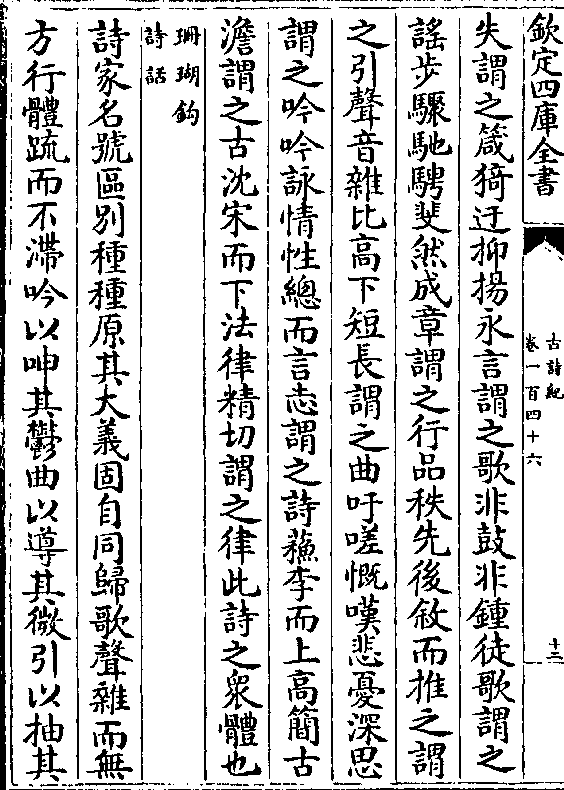 欽定四庫全書
古詩紀
卷一百四十六
十二
失謂之箴猗迂抑揚永言謂之歌非鼓非鍾徒歌謂之
謡步驟馳騁斐然成章謂之行品秩先後敘而推之謂
之引聲音雜比高下短長謂之曲吁嗟慨嘆悲憂深思
謂之吟吟詠情性總而言志謂之詩蘓李而上高簡古
澹謂之古沈宋而下法律精切謂之律此詩之衆體也
珊瑚鈎
詩話
詩家名號區别種種原其大義固自同歸歌聲雜而無
方行體疏而不滯吟以呻其鬱曲以導其微引以抽其